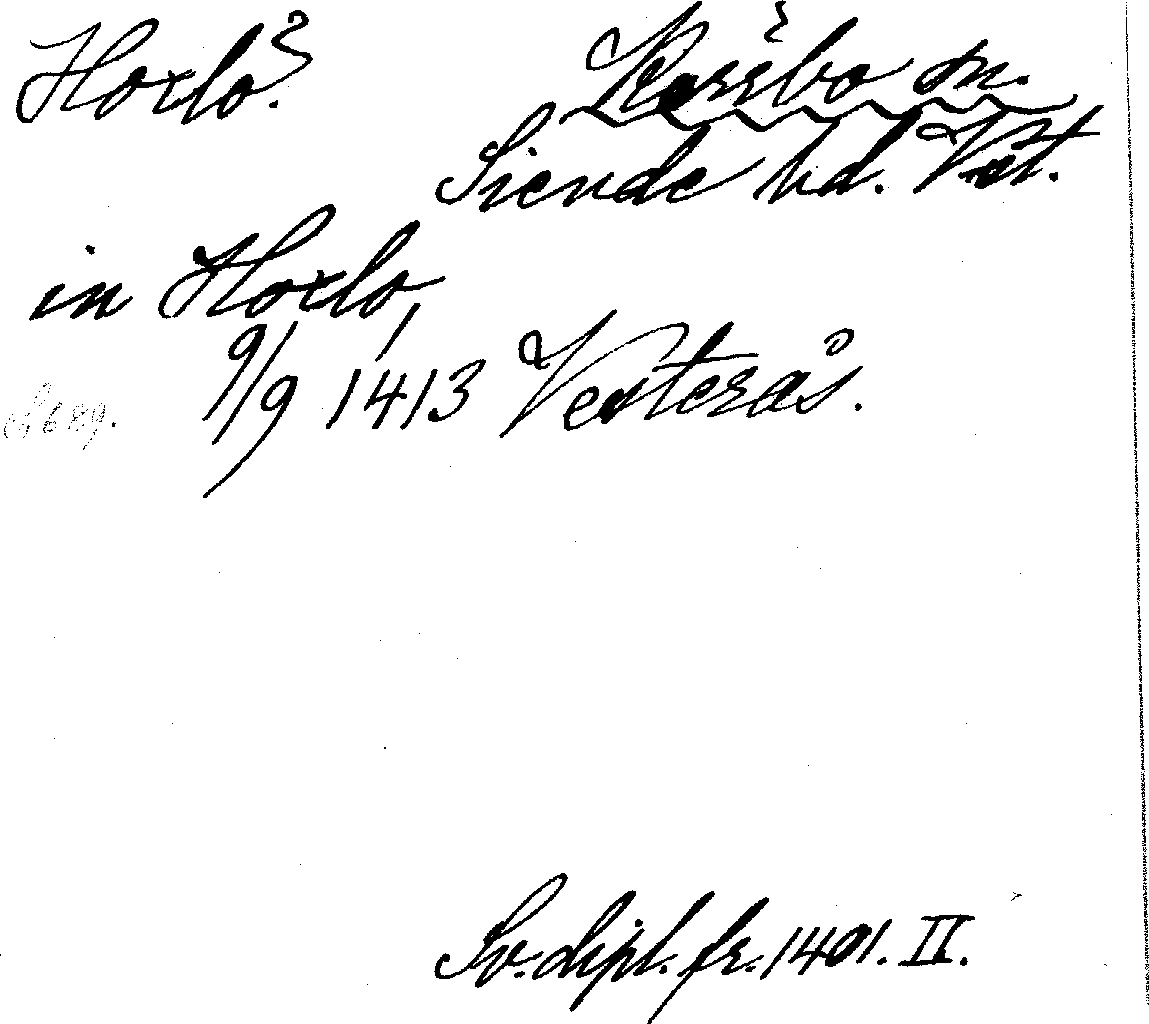 Horlo?
Kärrbo sn.
Siende hd. Vst.
in Horlo,
9/9 1413 Vesterås.
S 689.
Sv. dipl. fr. 1401. II.